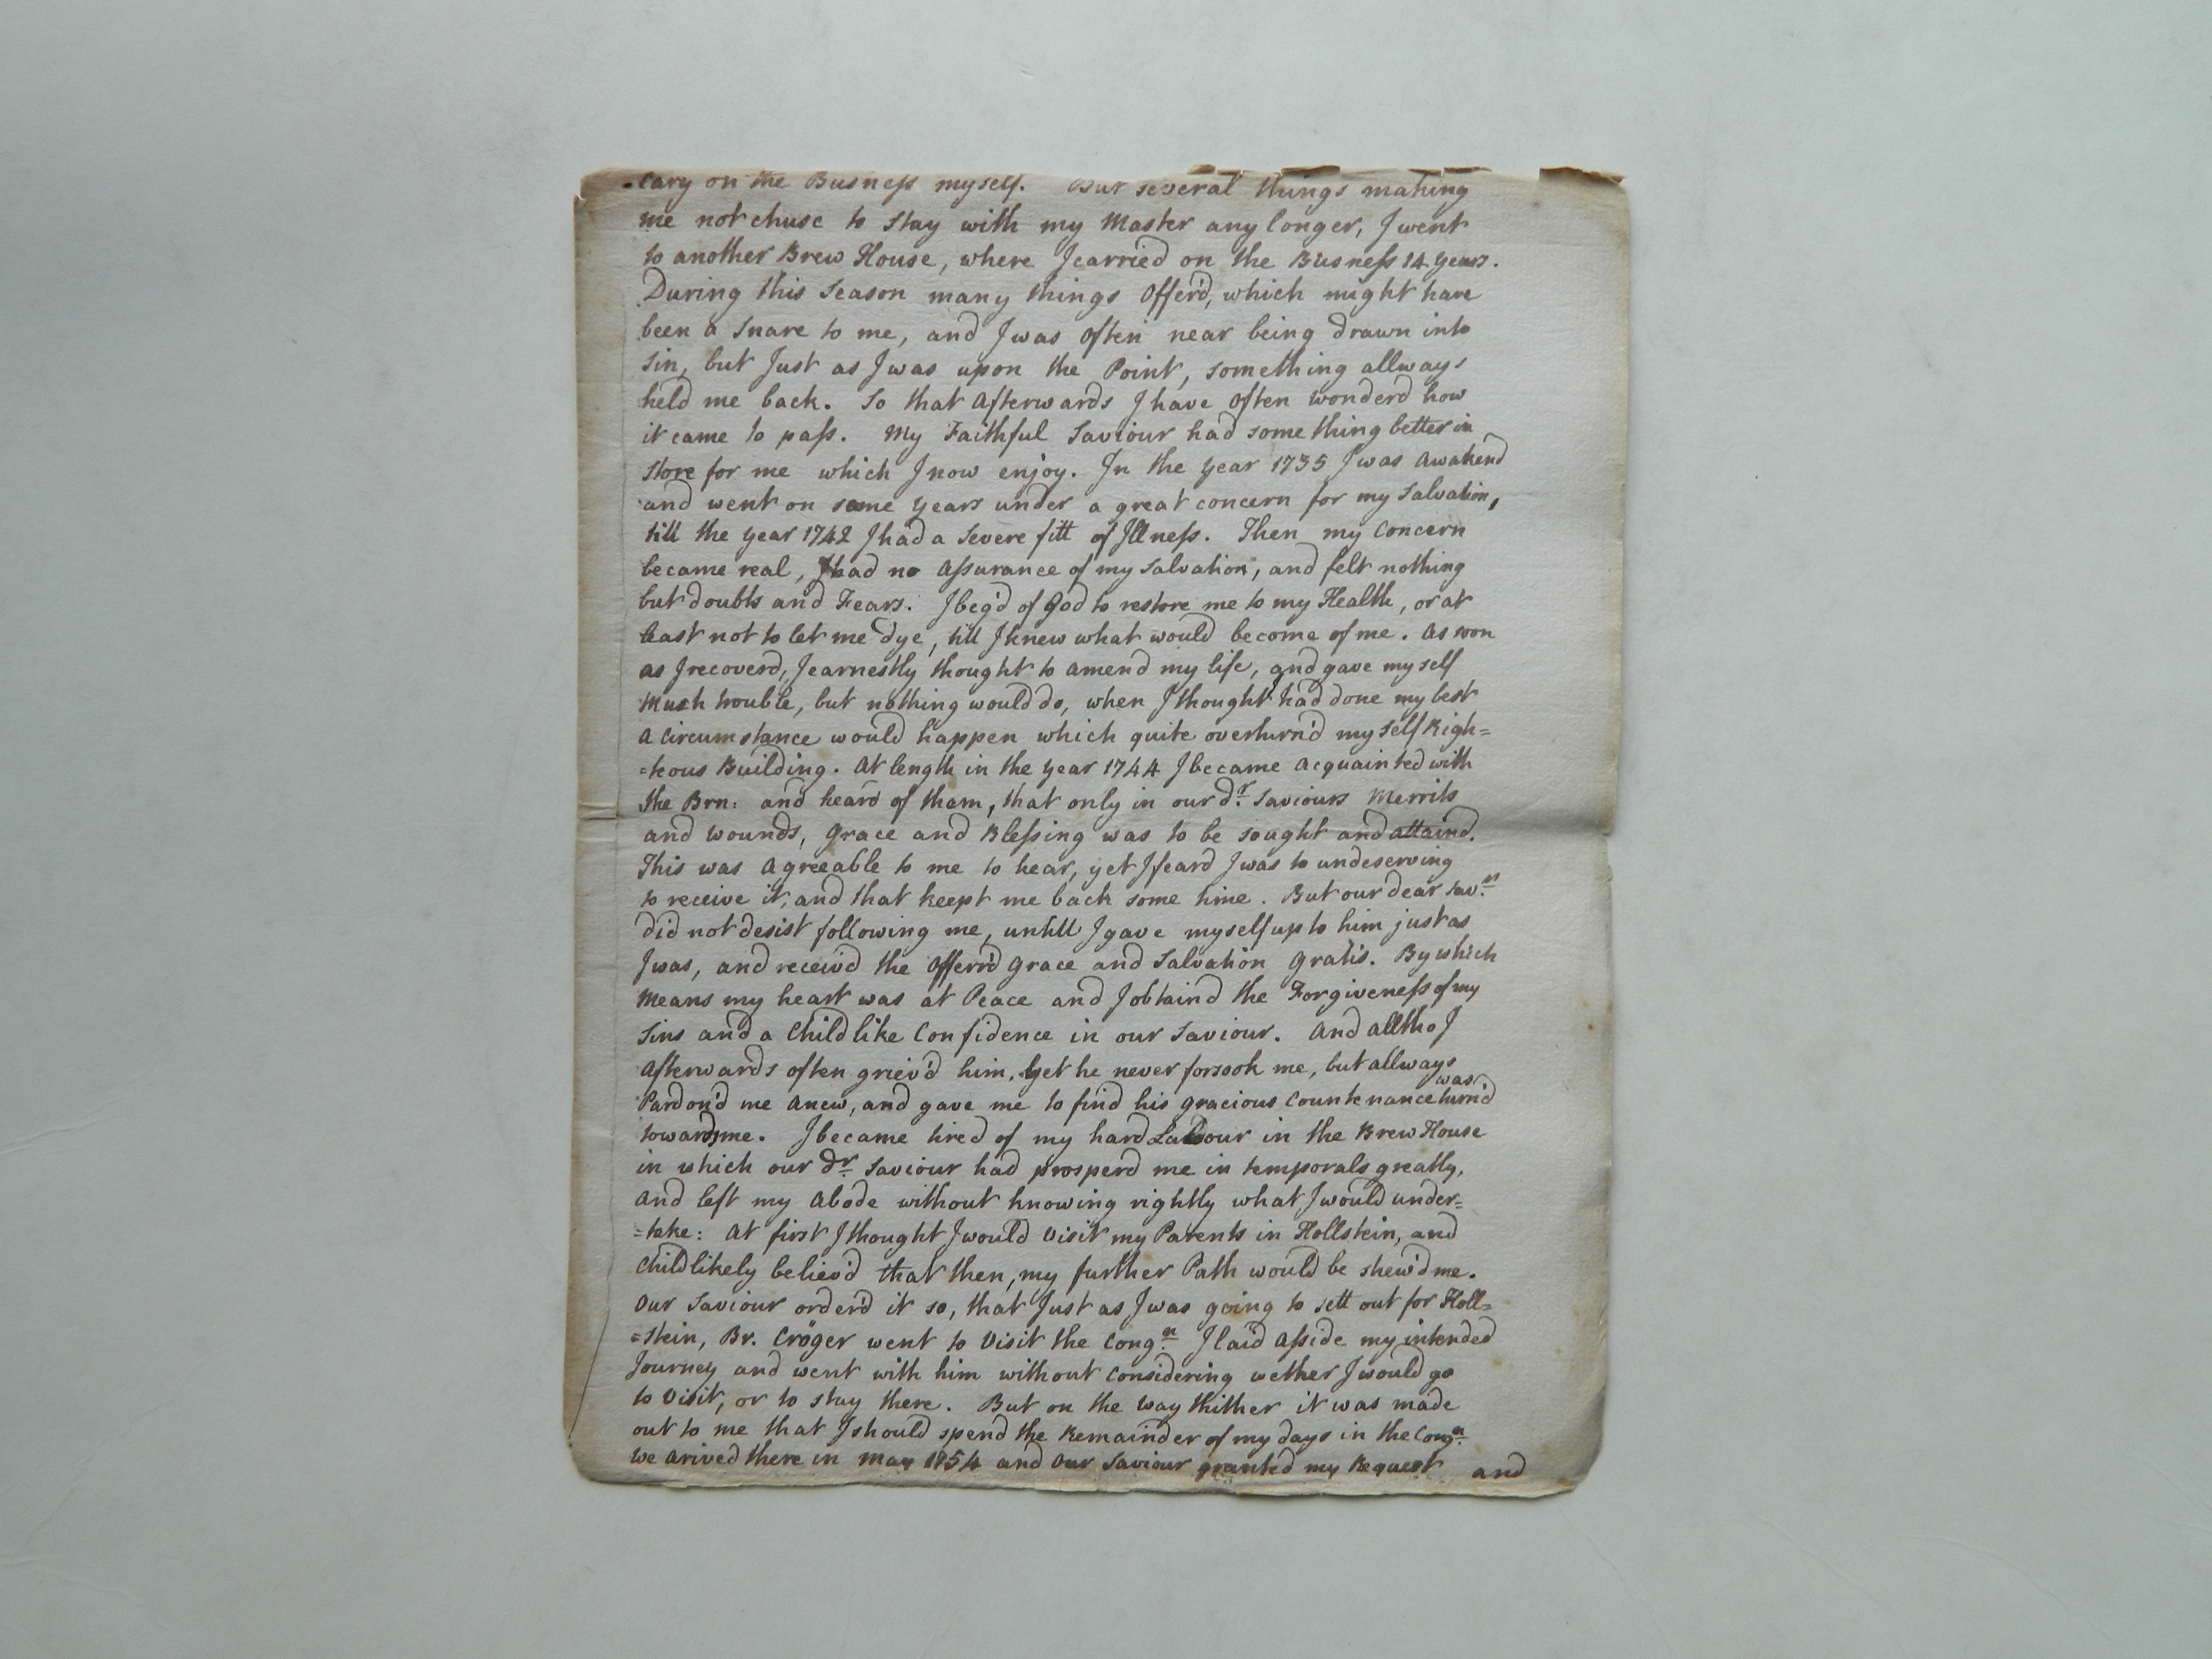 cary on the Business myself. But several things making
me not chuse to stay with my Master any longer, I went
to another Brew House, where I carried on the Busness 14 years.
During this Season many things Offer'd, which might have
been a Snare to me, and I was Often near being drawn into
Sin, but Just as I was upon the Point, something allways
held me back. So that Afterwards I have Often wonderd how
it came to pass. My Faithful Saviour had some thing better in
store for me which I now enjoy. In the year 1735 I was Awakend
and went on some years under a great concern for my Salvation,
till the year 1742 I had a Severe fitt of Illness. Then my Concern
became real, I had no Assurance of my Salvation, and felt nothing
but doubts and Fears. I beg'd of God to restore me to my Health, or at
least not to let me dye, till I knew what would become of me. As soon
as I recoverd, I earnestly thought to amend my life, and gave my self
Much trouble, but nothing would do, when I thought I had done my best
A Circumstance would happen which quite overturn'd my Self Righ=
=teous Building. At length in the year 1744 I became Acquainted with
the Brn: and heard of them, that only in our dr. Saviours Merrits
and wounds, Grace and Blessing was to be sought and attaind.
This was Agreeable to me to hear, yet I feard I was to undeserving
to receive it, and that keept me back some time. But our dear Savr.
did not desist following me, untill I gave myself up to him just as
I was, and receiv'd the Offerr'd Grace and Salvation Gratis. By which
Means my heart was at Peace and I obtaind the Forgiveness of my
Sins and a Childlike Confidence in our Saviour. And alltho I
Afterwards often griev'd him, yet he never forsook me, but allways
Pardon'd me Anew, and gave me to find his gracious Countenance was turn'd
towards me. I became tired of my hard Labour in the Brew House
in which our dr. Saviour had prosperd me in temporals greatly,
And left my Abode without knowing rightly what I would under=
=take: At first I thought I would Visit my Parents in Hollstein, and
Childlikely believ'd that then, my further Path would be shew'd me.
Our Saviour order'd it so, that Just as I was going to sett out for Holl=
=stein, Br. Cröger went to Visit the Congn. I laid Asside my intended
Journey and went with him without Considering wether I would go
to Visit, or to stay there. But on the way thither it was made
out to me that I should spend the Remainder of my days in the Congn.
We arived there in May 1754 and Our Saviour granted my Request and